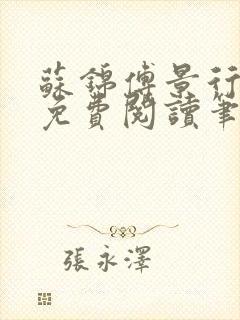 蘇錦傅景行
免費閱讀筆
張永澤